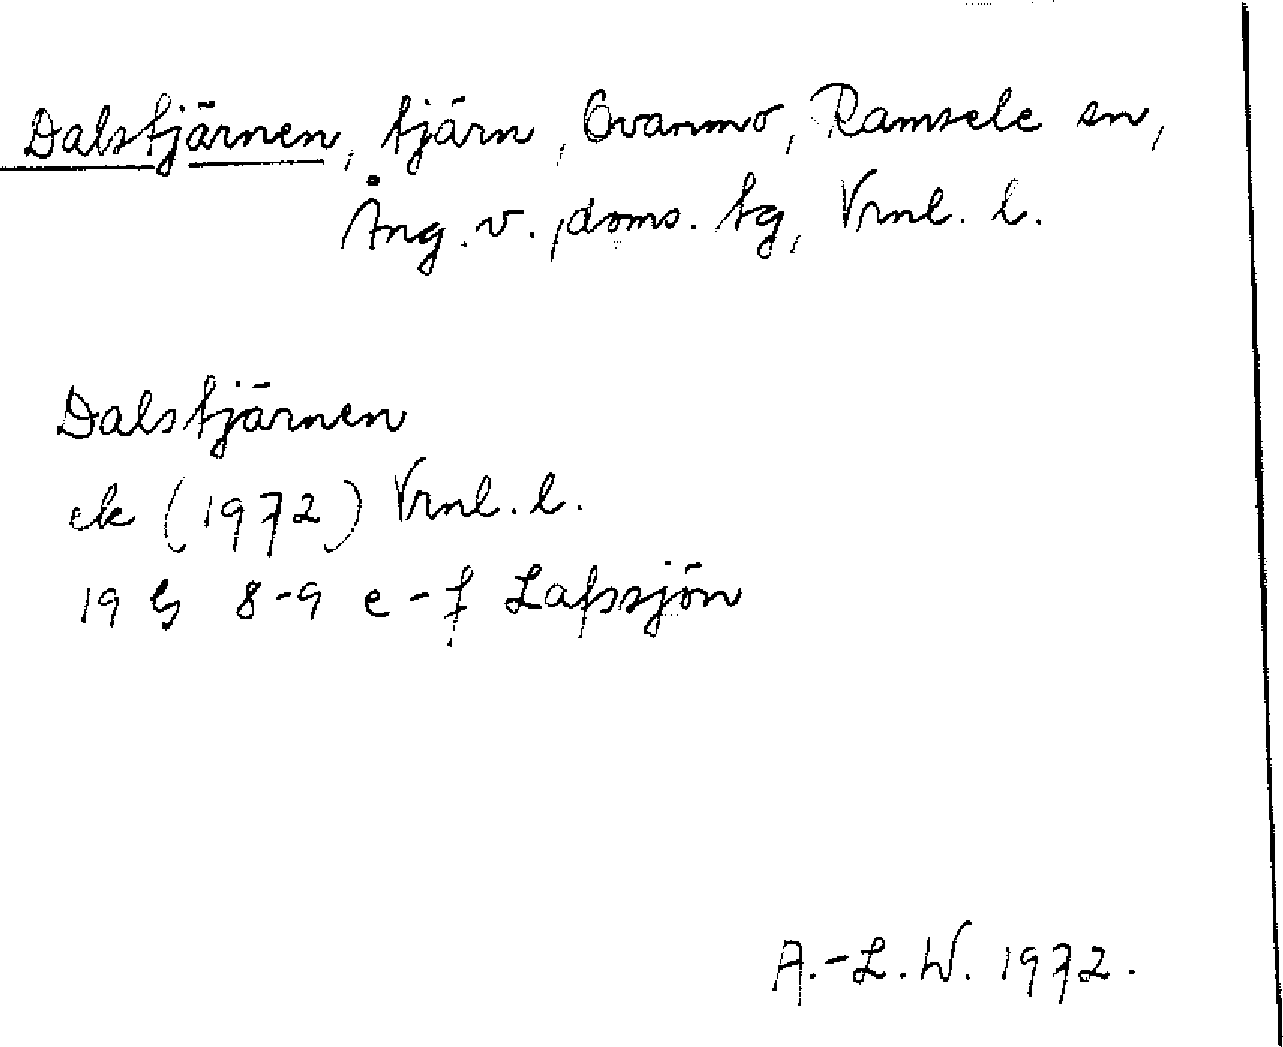 Dalstjärnen, tjärn, Ovanmo, Ramsele sn,
Ång. v. doms. tg, Vrnl. l.
Dalstjärnen
ek (1972) Vrnl. l.
19 G 8-9 e-f Lafssjön
A.-L. W. 1972.